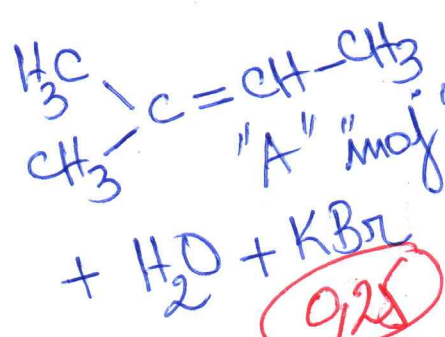 H3C
C=CH-CH3
CH3
"A" "maj"
+ H2O + KBr
0,25